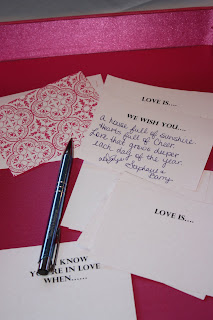 LOVE IS....
WE WISH YOU....
A house full of sunshine
Hearts full of Cheer
Love that grows deeper
each day of the year.
+
Barry
LOVE IS...
KNOW
YOU'RE IN LOVE
WHEN......